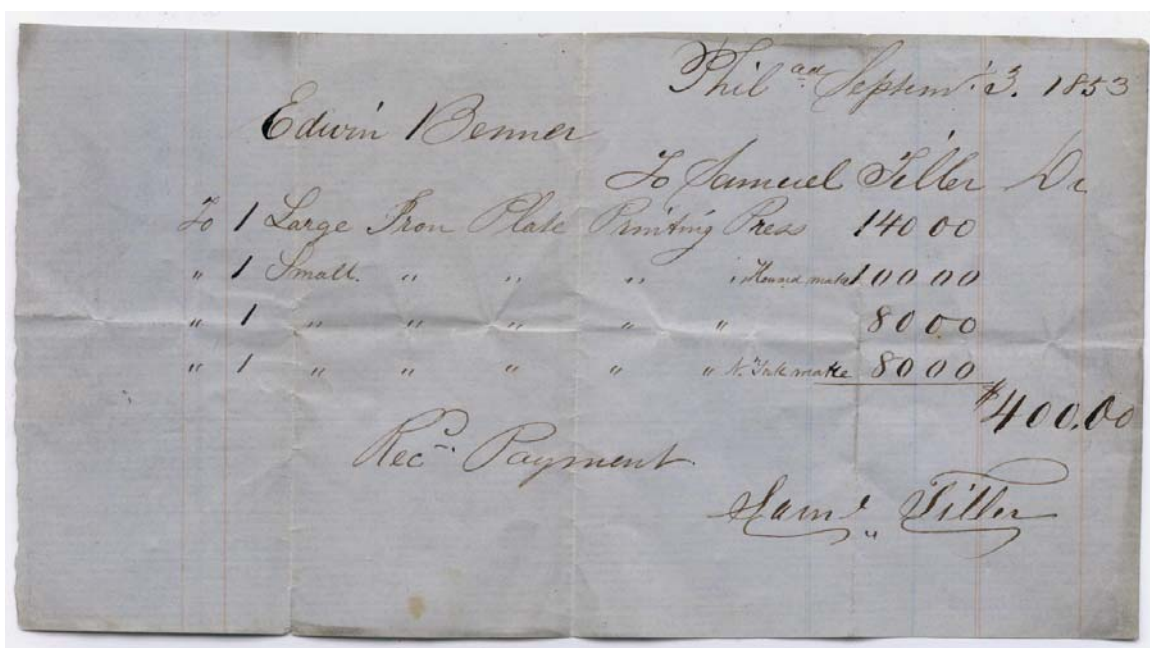 Phil ad. Septem. 3. 1853
Edwin Benner
To Samuel Tiller Dr
To 1 Large Iron Plate Printing Press 140 00
" 1 Small " " " " make 100 00
" 1 " " " " " 80 00
" 1 " " " " " N. York make 80 00
$400.00
Rec.d Payment
Saml. Tiller